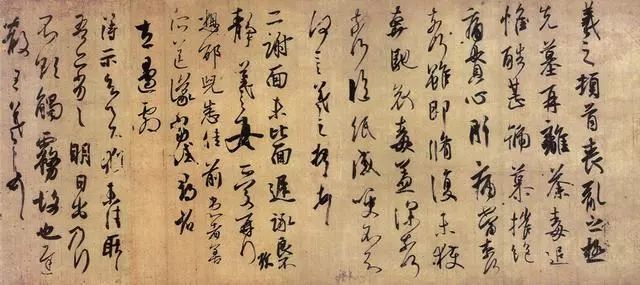 羲之頓首喪亂之極
先墓再離荼毒追
惟酷甚號慕摧絕
痛貫心肝痛當奈何
奈何雖即脩復未獲
奔馳哀毒益深奈何
奈何臨紙感哽不知
何言羲之頓首頓首
二謝面未比面遲詠良不
靜羲之女愛再拜
想邪兒悉佳前患者善
左邊劇
得示知足下猶未佳耿耿
吾亦劣劣明日出乃行
不欲觸霧故也遲
散王羲之頓首